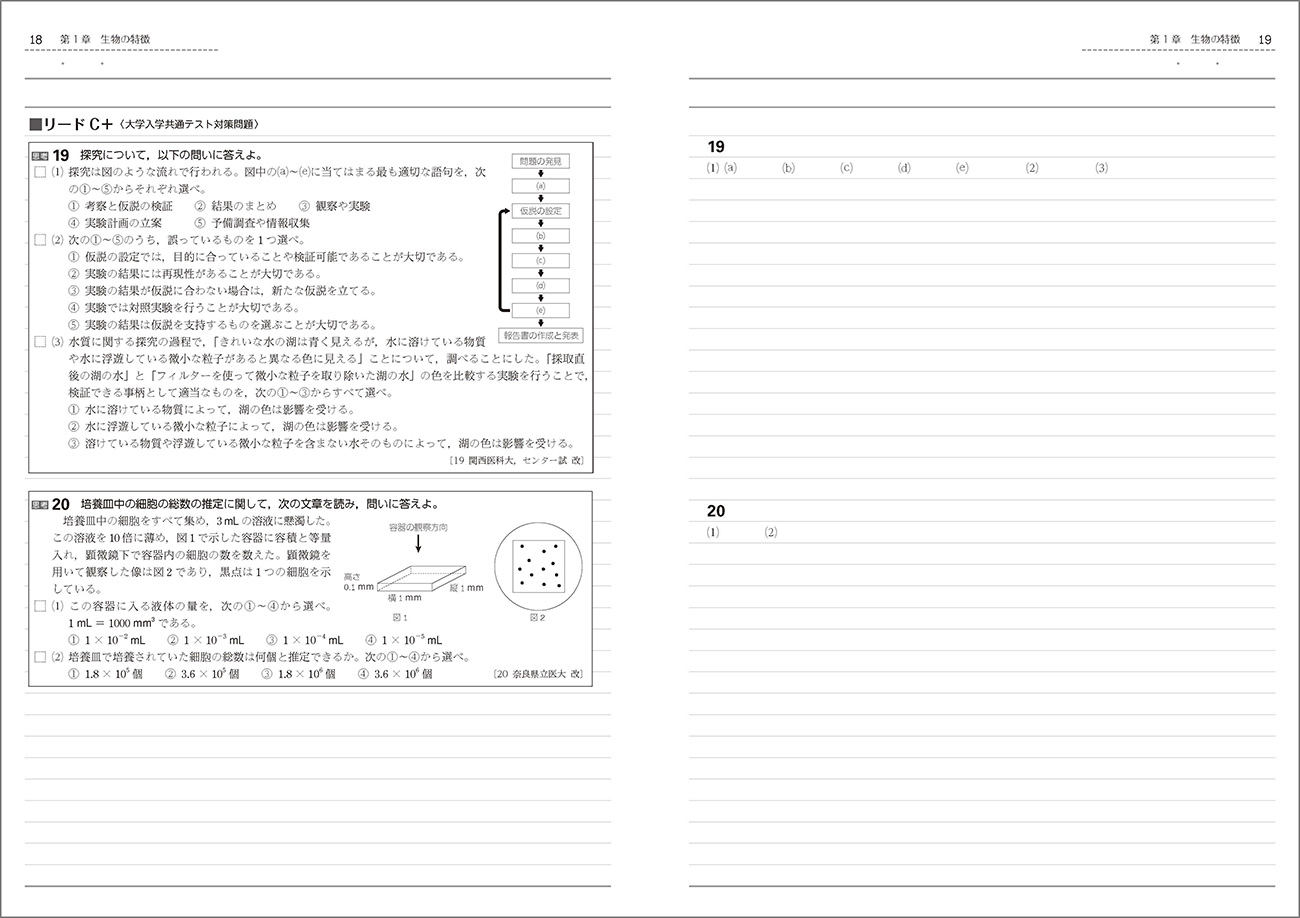 18 第1章 生物の特徴
■リードC+〈大学入学共通テスト対策問題〉
思考 19 探究について，以下の問いに答えよ。
□ (1) 探究は図のような流れで行われる。図中の(a)～(e)に当てはまる最も適切な語句を，次
の①～⑤からそれぞれ選べ。
① 考察と仮説の検証 ② 結果のまとめ ③ 観察や実験
④ 実験計画の立案 ⑤ 予備調査や情報収集
□ (2) 次の①～⑤のうち，誤っているものを1つ選べ。
① 仮説の設定では，目的に合っていることや検証可能であることが大切である。
② 実験の結果には再現性があることが大切である。
③ 実験の結果が仮説に合わない場合は，新たな仮説を立てる。
④ 実験では対照実験を行うことが大切である。
⑤ 実験の結果は仮説を支持するものを選ぶことが大切である。
問題の発見
(a)
仮説の設定
(b)
(c)
(d)
(e)
報告書の作成と発表
□ (3) 水質に関する探究の過程で，「きれいな水の湖は青く見えるが，水に溶けている物質
や水に浮遊している微小な粒子があると異なる色に見える」ことについて，調べることにした。「採取直
後の湖の水」と「フィルターを使って微小な粒子を取り除いた湖の水」の色を比較する実験を行うことで，
検証できる事柄として適当なものを，次の①～③からすべて選べ。
① 水に溶けている物質によって，湖の色は影響を受ける。
② 水に浮遊している微小な粒子によって，湖の色は影響を受ける。
③ 溶けている物質や浮遊している微小な粒子を含まない水そのものによって，湖の色は影響を受ける。
〔19 関西医科大，センター試 改〕
思考 20 培養皿中の細胞の総数の推定に関して，次の文章を読み，問いに答えよ。
培養皿中の細胞をすべて集め，3mLの溶液に懸濁した。
この溶液を10倍に薄め，図1で示した容器に容積と等量
入れ，顕微鏡下で容器内の細胞の数を数えた。顕微鏡を
用いて観察した像は図2であり，黒点は1つの細胞を示
している。
容器の観察方向
高さ
0.1 mm
横1 mm
縦1 mm
図1
図2
□ (1) この容器に入る液体の量を，次の①～④から選べ。
1 mL = 1000 mm³ である。
① 1 × 10⁻² mL ② 1 × 10⁻³ mL ③ 1 × 10⁻⁴ mL ④ 1 × 10⁻⁵ mL
□ (2) 培養皿で培養されていた細胞の総数は何個と推定できるか。次の①～④から選べ。
① 1.8 × 10⁵ 個 ② 3.6 × 10⁵ 個 ③ 1.8 × 10⁶ 個 ④ 3.6 × 10⁶ 個 〔20 奈良県立医大 改〕
第1章 生物の特徴 19
19
(1) (a) (b) (c) (d) (e) (2) (3)
20
(1) (2)